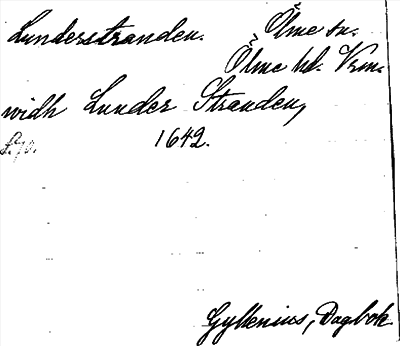 Lunderstranden. Ölme sn.
Ölme hd. Vrm.
widh Lunder Stranden,
1642.
Gyllenius, Dagbok